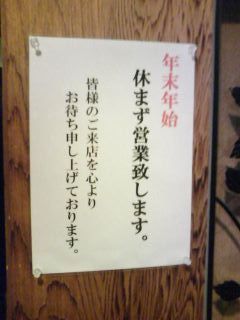 年末年始
休まず営業致します。
皆様のご来店を心より
お待ち申し上げております。